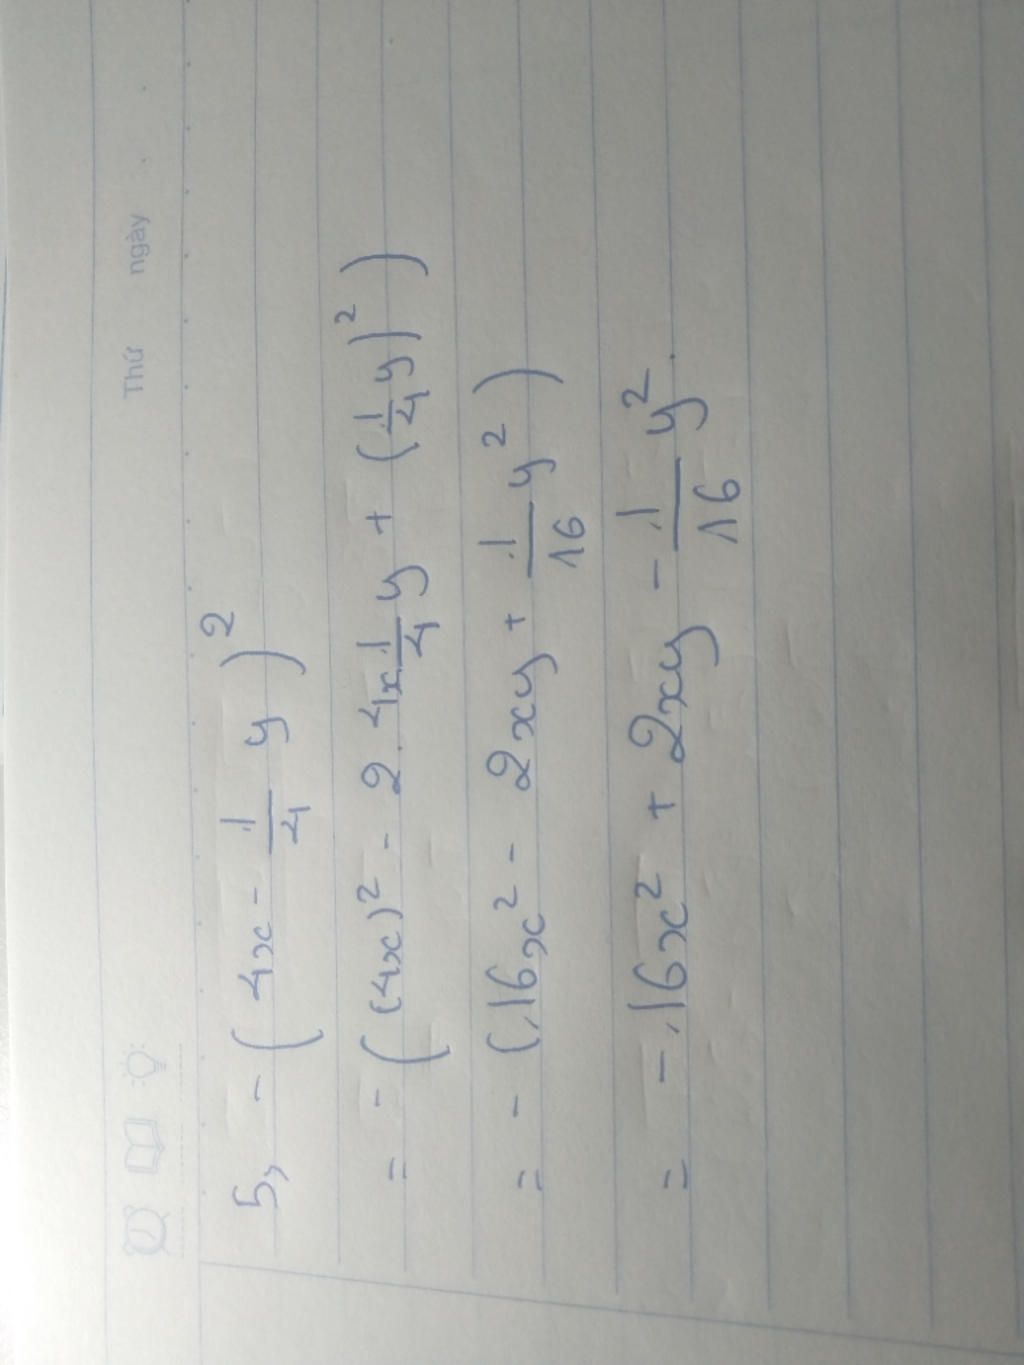 Thứ ngày
5, - ( 4x - 1/4 y )²
= - ( (4x)² - 2 . 4x . 1/4 y + ( 1/4 y )² )
= - ( 16x² - 2xy + 1/16 y² )
= - 16x² + 2xy - 1/16 y² .